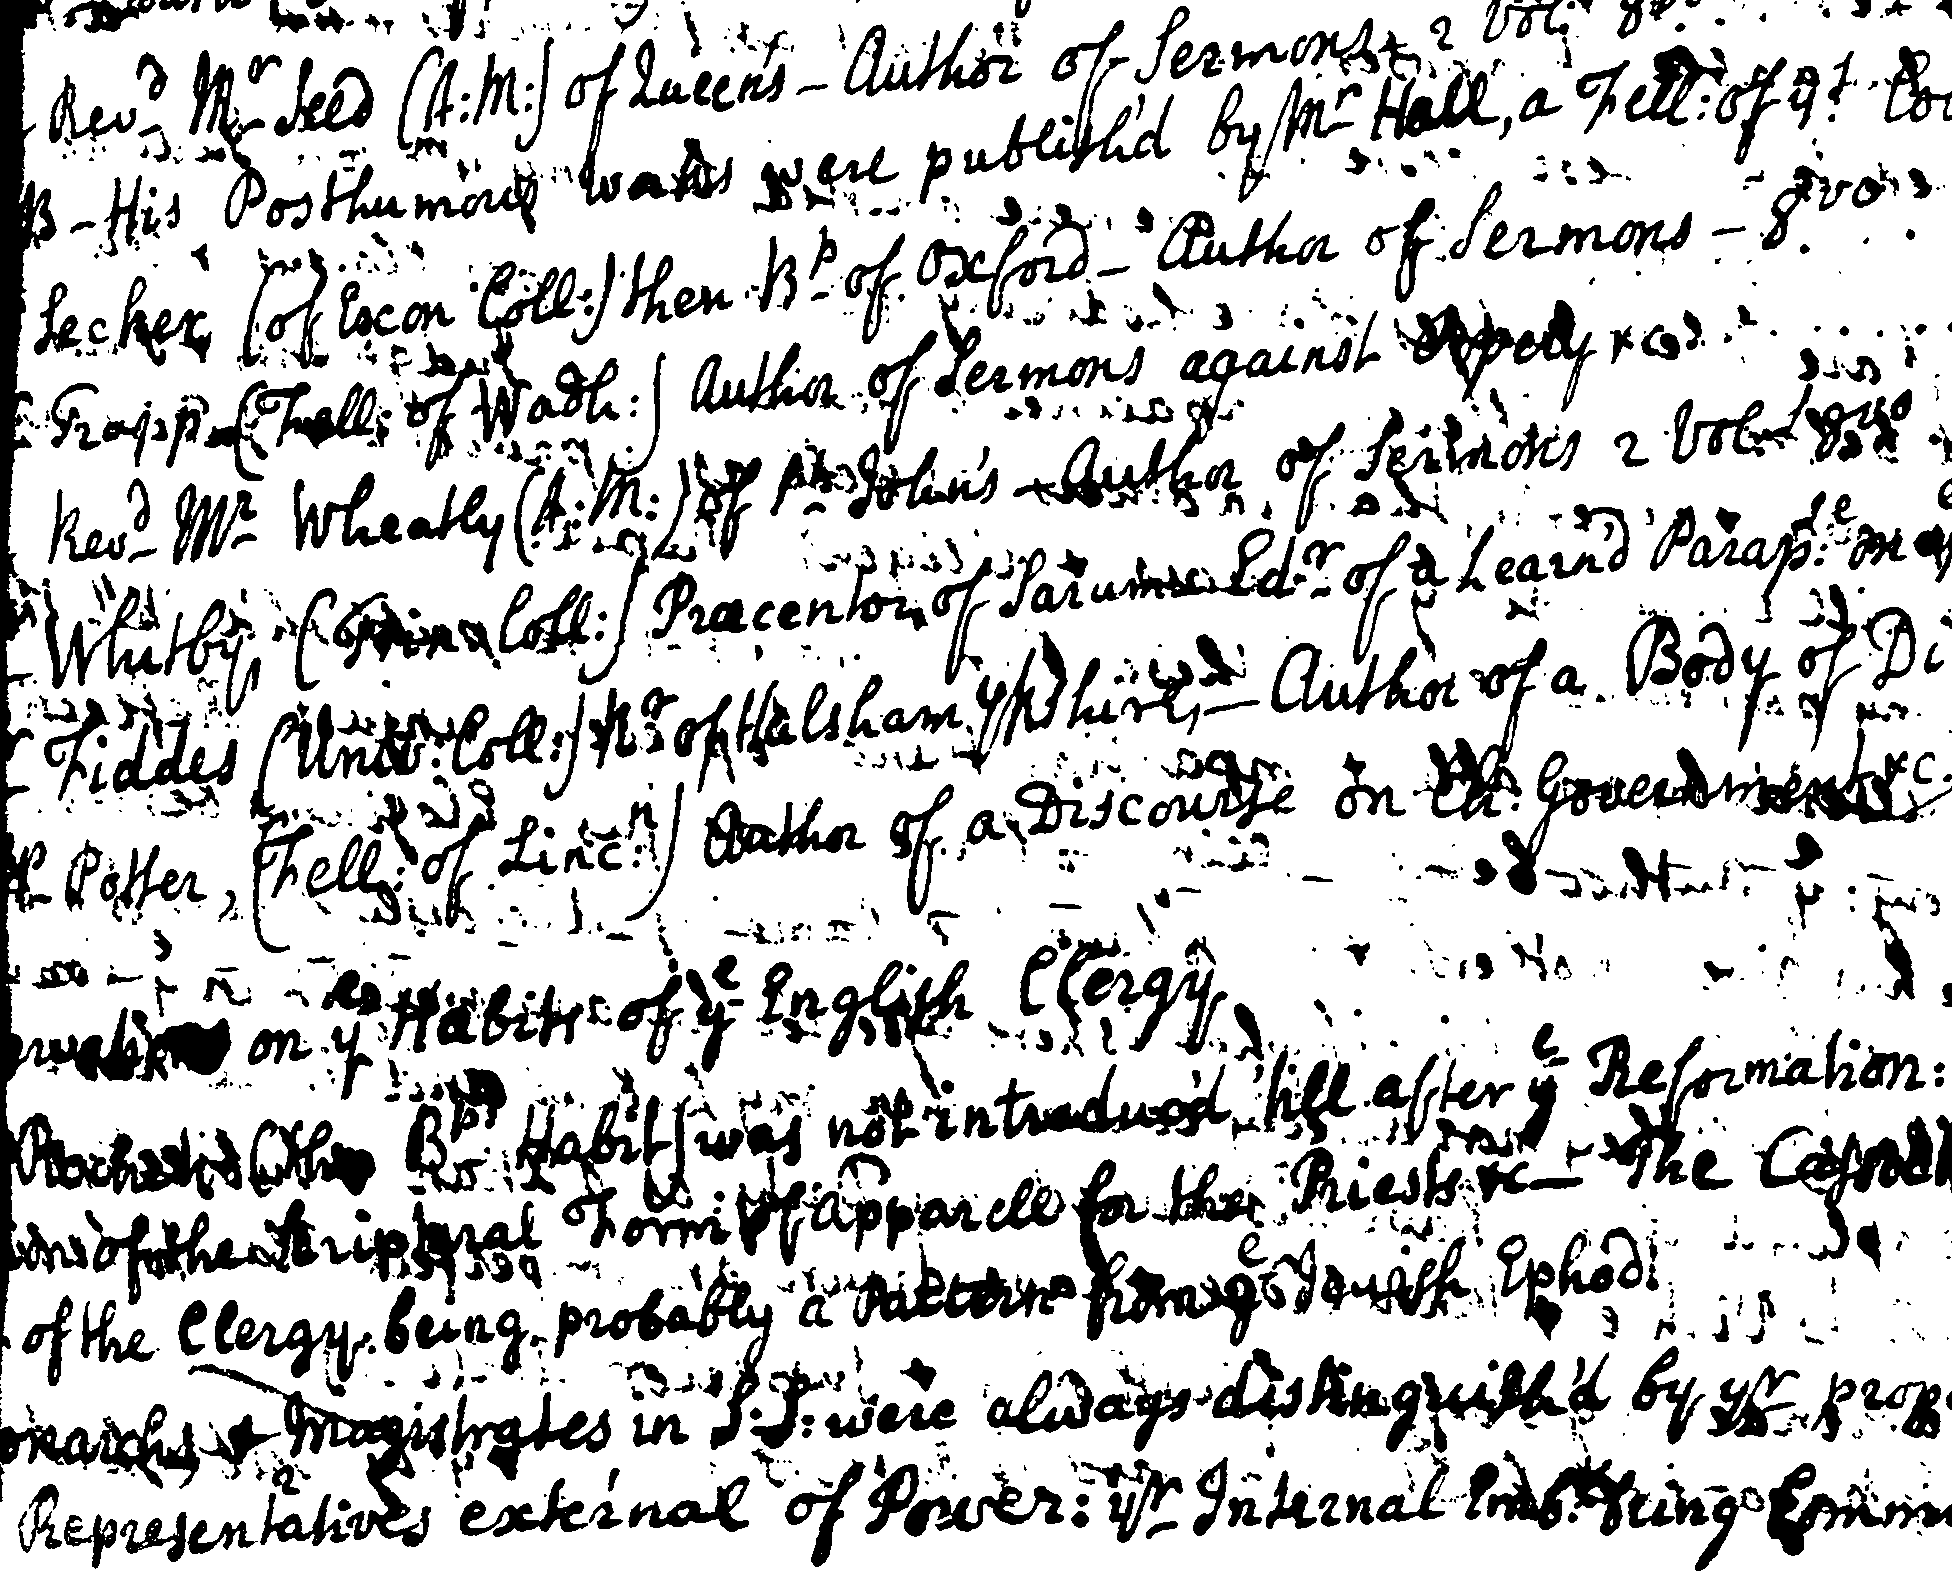 Rev.d M.r Seed (A:M:) of Queen's - Author of Sermons, 2 Vol: 8
B - His Posthumous works were publish'd by M.r Hall, a Fell: of y.t
Secker, (of Exon Coll:) then B.p of Oxford - Author of Sermons - 8.vo
Trapp (Fell: of Wadh:) Author of Sermons against Popery &c
Rev.d M.r Wheatly (A:M:) of St John's - Author of Sermons 2 Vol. 8vo
Whitby, (Trin. Coll:) Præcentor of Sarum Ed.r of a Learn'd Parap.se on
Fiddes (Univ: Coll:) R.r of Halsham Y.kshire, - Author of a Body of Di
Potter, (Fell: of Linc.n) Author of a Discourse on Ch: Government &c.
on y.e Habits of y.e English Clergy
B.ps Habit) was not introduc'd till after y.e Reformation:
of the Form of apparell for the Priests &c - The
of the Clergy being probably a Pattern from y.e Jewish Ephod.
onarchs & Magistrates in S:S: were always distinguish'd by y.r prop
Representatives external of Power: y.r Internal Emb: being